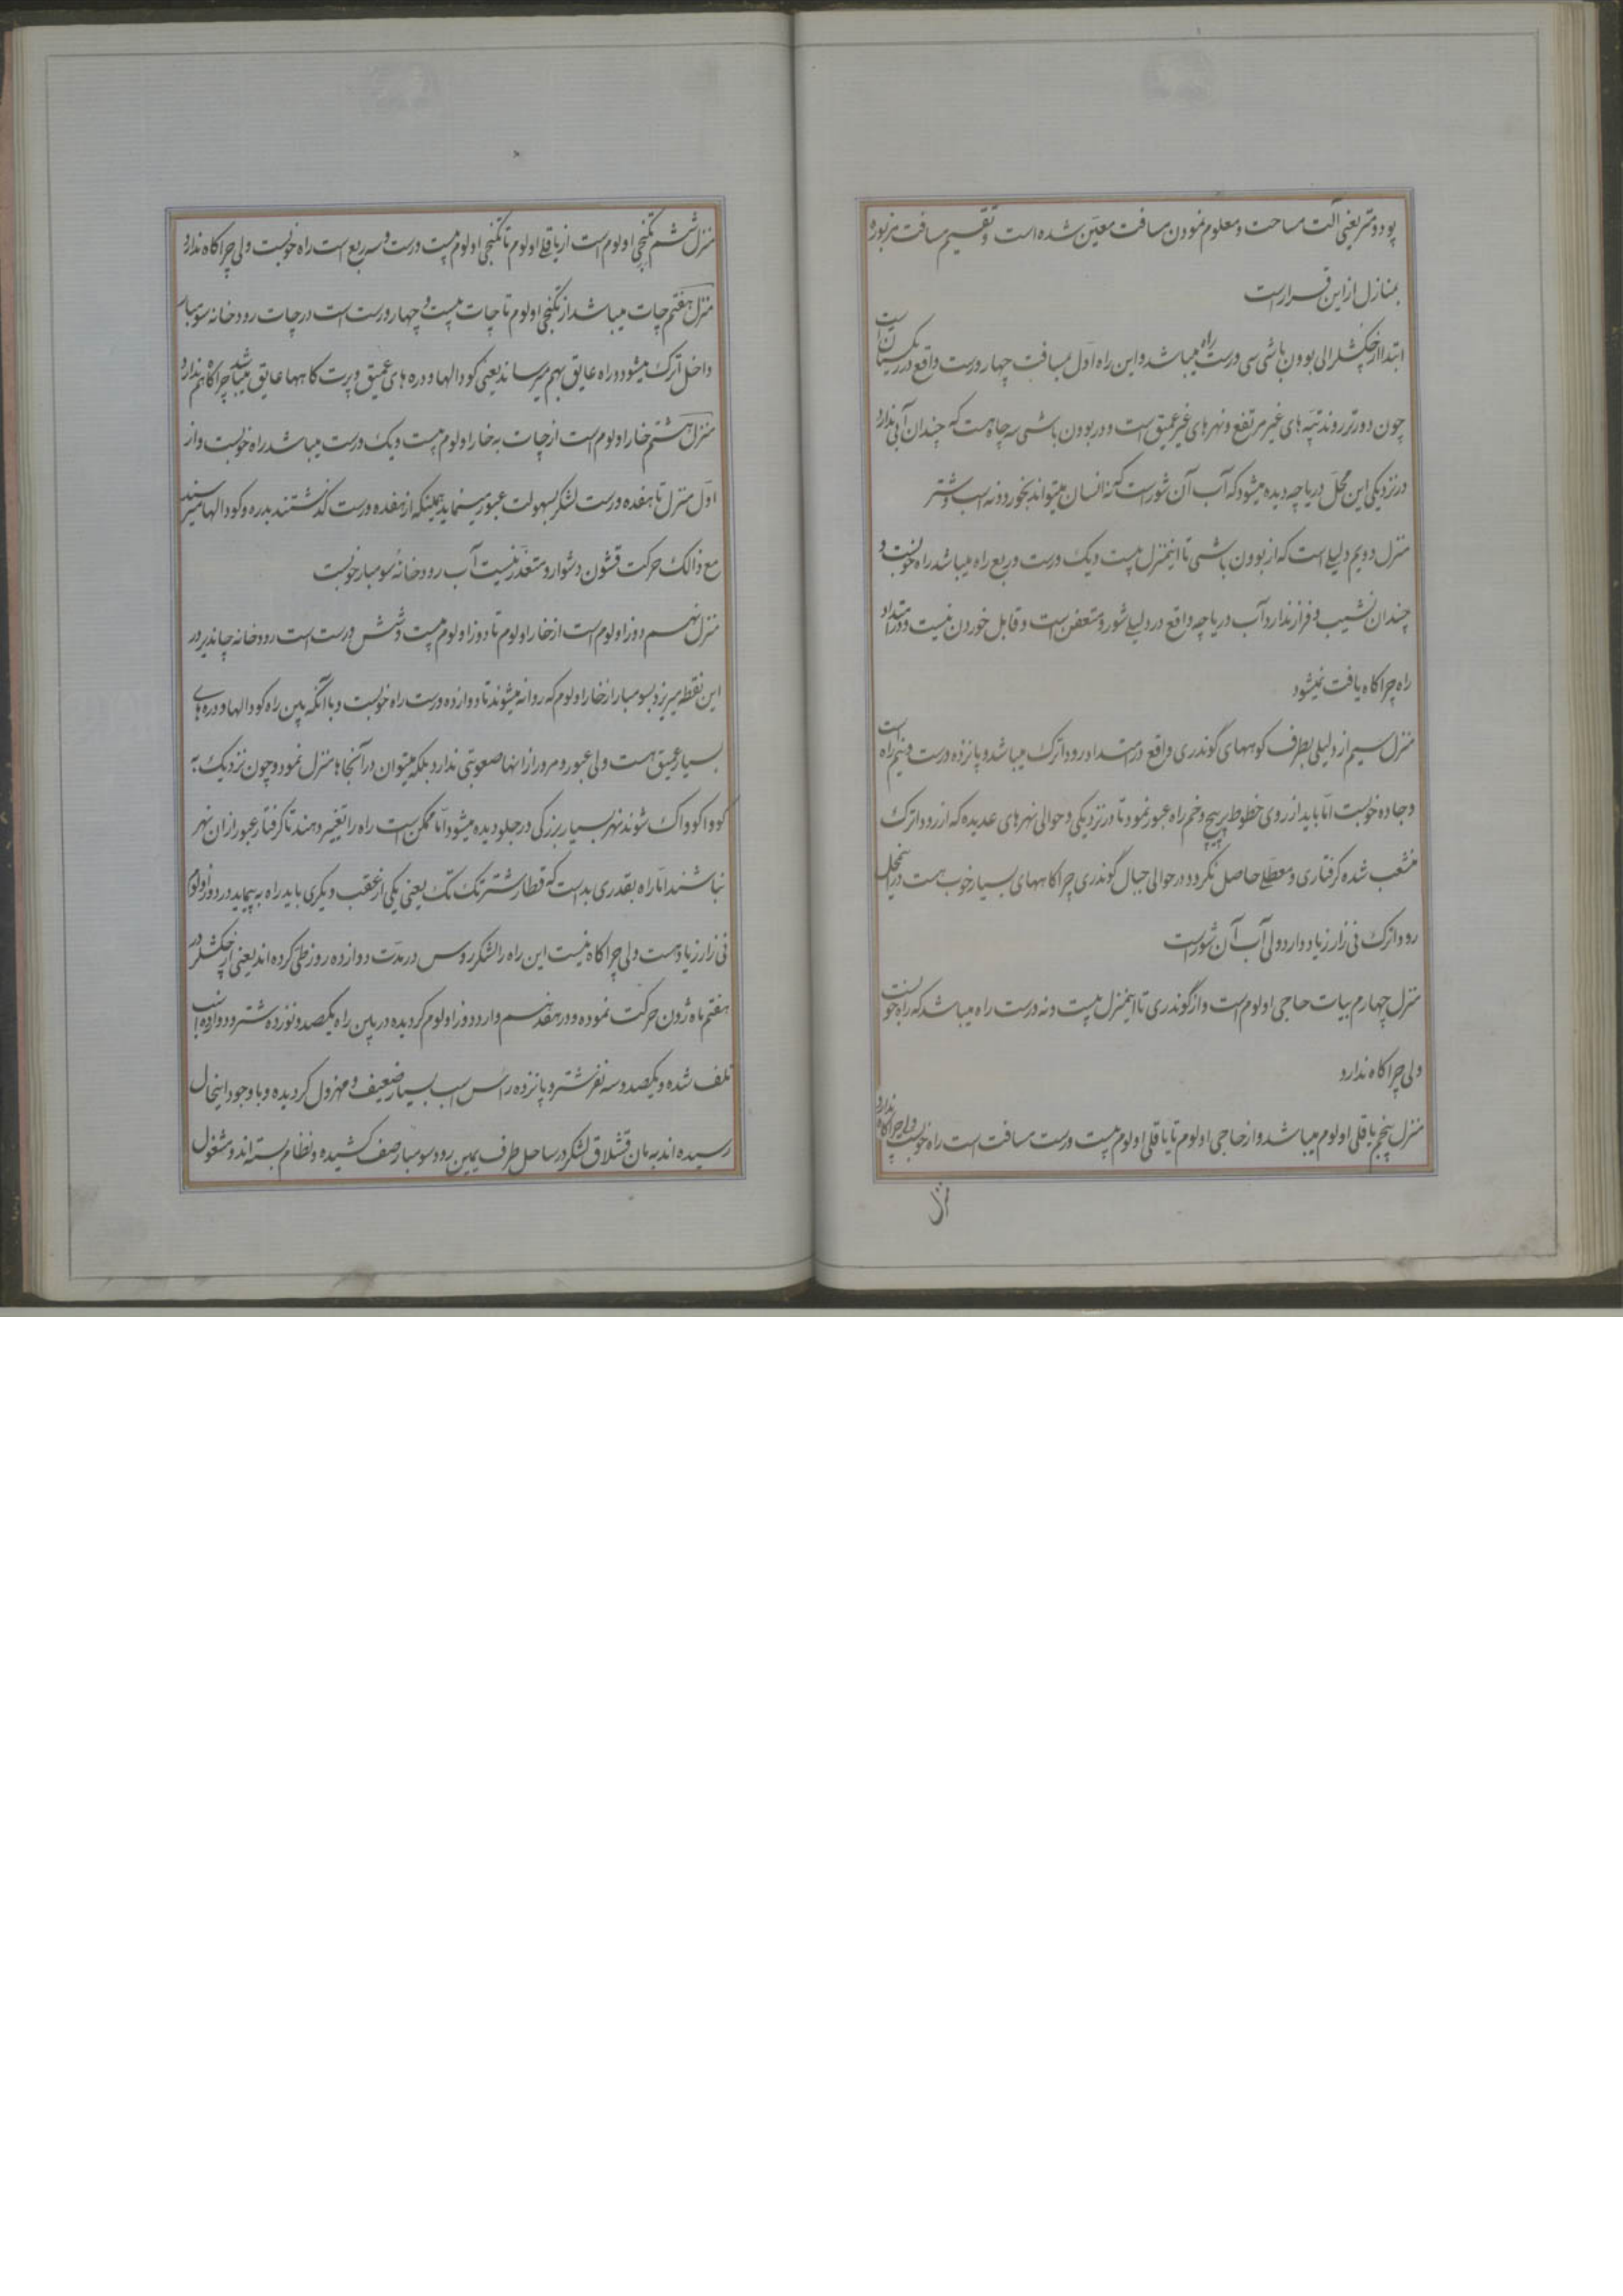 پودومتر یعنی آلت مساحت و معلوم نمودن مسافت معین شده است و تقسیم مسافت مزبوره
بمنازل از این قرار است
ابتدا از چکشلر الی بوون باشی سی ورست راه میباشد و این راه اول بمسافت چهار ورست واقع در ریگستان است
چون دورتر روند تپه های غیر مرتفع و نهرهای غیر عمیق است و در بوون باشی سه چاه هست که چندان آبی ندارد
در نزدیکی این محل دریاچه دیده میشود که آب آن شور است که نه انسان میتواند بخورد و نه اسب و شتر
منزل دویم دلیلی است که از بوون باشی تا اینمنزل بیست و یک ورست و ربع راه میباشد راه خوبست و
چندان نشیب و فراز ندارد آب دریاچه واقع در دلیلی شور و متعفن است و قابل خوردن نیست و در امتداد
راه چراگاه یافت نمیشود
منزل سیم از دلیلی بطرف کوههای گوندری واقع در امتداد رود اترک میباشد و پانزده ورست و نیم راه است
و جاده خوبست اما باید از روی خطوط پرپیچ و خم راه عبور نمود تا در نزدیکی و حوالی نهرهای عدیده که از رود اترک
منشعب شده گرفتاری و معطلی حاصل نگردد در حوالی جبال گوندری چراگاههای بسیار خوب هست در اینمحل
رود اترک نی زار زیاد دارد ولی آب آن شور است
منزل چهارم بیات حاجی اولوم است و از گوندری تا اینمنزل بیست و نه ورست راه میباشد که راه خوبست
ولی چراگاه ندارد
منزل پنجم یاقلی اولوم میباشد و از حاجی اولوم تا یاقلی اولوم بیست ورست مسافت است راه خوبست ولی چراگاه ندارد
منزل
منزل ششم تکنجی اولوم است از یاقلی اولوم تا تکنجی اولوم بیست ورست و سه ربع است راه خوبست ولی چراگاه ندارد
منزل هفتم چات میباشد از تکنجی اولوم تا چات بیست و چهار ورست است در چات رودخانه سومبار
داخل اترک میشود و راه عایق بهم میرساند یعنی گودالها و دره های عمیق و پرت گاهها عایق میباشد چراگاه هم ندارد
منزل هشتم خار اولوم است از چات به خار اولوم بیست و یک ورست میباشد راه خوبست و از
اول منزل تا هفده ورست لشکر بسهولت عبور مینماید همینکه از هفده ورست گذشتند بدره و گودالها میرسند
مع ذالک حرکت قشون دشوار و متعذر نیست آب رودخانه سومبار خوبست
منزل نهم دوز اولوم است از خار اولوم تا دوز اولوم بیست و شش ورست است رودخانه چاندیر در
این نقطه میریزد بسومبار از خار اولوم که روانه میشوند تا دوازده ورست راه خوبست و با آنکه بین راه گودالها و دره های
بسیار عمیق هست ولی عبور و مرور از انها صعوبتی ندارد بلکه میتوان در آنجاها منزل نمود و چون نزدیک به
کووا کوواک شوند نهر بسیار بزرگی در جلو دیده میشود اما ممکن است راه را تغییر دهند تا گرفتار عبور از ان نهر
نباشند اما راه بقدری بد است که قطار شتر تک تک یعنی یکی از عقب دیگری باید راه به پیماید در دوز اولوم
نی زار زیاد هست ولی چراگاه نیست این راه را لشکر روس در مدت دوازده روز طی کرده اند یعنی از چکشلر در
هفتم ماه ژون حرکت نموده و در هفدهم وارد دوز اولوم گردیده در بین راه یکصد و نوزده شتر و دوازده اسب
تلف شده و یکصد و سه نفر شتر و پانزده رأس اسب بسیار ضعیف و مهزول گردیده و با وجود اینحال
رسیده اند به مان قشلاق لشکر در ساحل طرف یمین رود سومبار صف کشیده و نظام بسته اند و مشغول